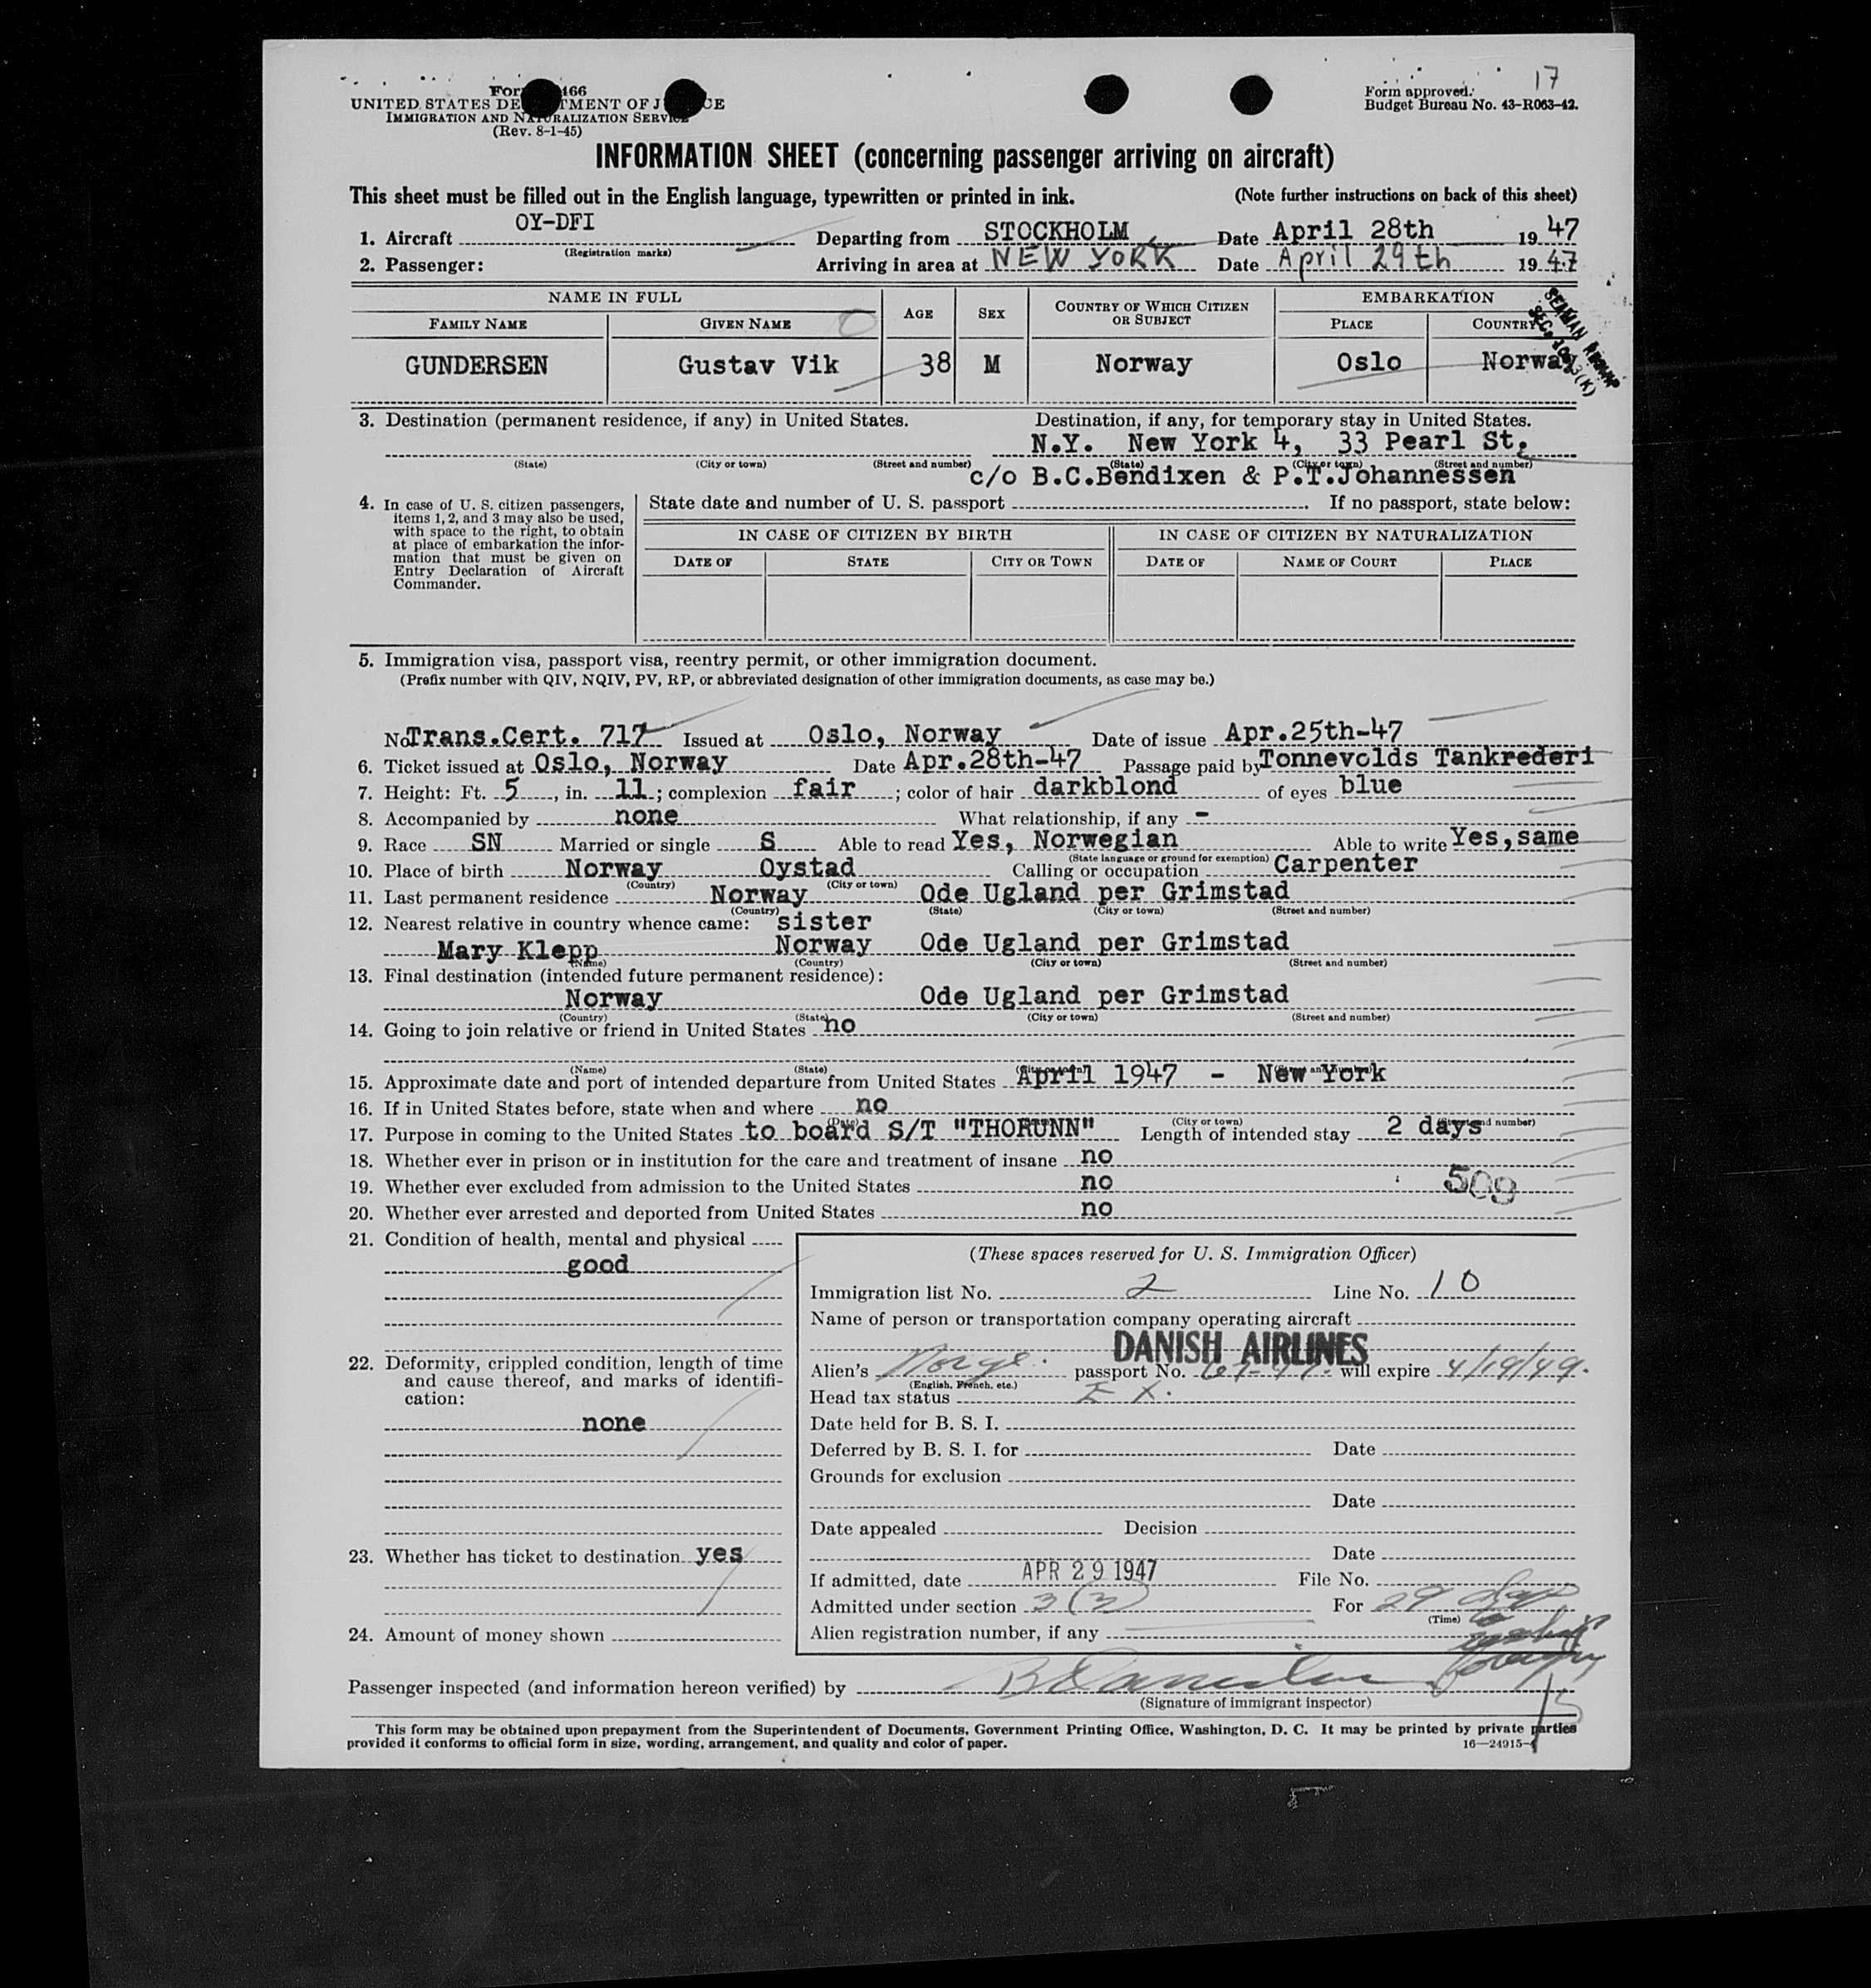 17
Form 466
UNITED STATES DE TMENT OF J CE
IMMIGRATION AND NATURALIZATION SERVICE
(Rev. 8-1-45)
Form approved.
Budget Bureau No. 43-R063-42.
INFORMATION SHEET (concerning passenger arriving on aircraft)
This sheet must be filled out in the English language, typewritten or printed in ink. (Note further instructions on back of this sheet)
1. Aircraft OY-DFI Departing from STOCKHOLM Date April 28th 1947
(Registration marks)
2. Passenger: Arriving in area at NEW YORK Date April 29th 1947
NAME IN FULL AGE SEX COUNTRY OF WHICH CITIZEN OR SUBJECT EMBARKATION
FAMILY NAME GIVEN NAME PLACE COUNTRY
GUNDERSEN Gustav Vik 38 M Norway Oslo Norway
SEAMAN
3. Destination (permanent residence, if any) in United States. Destination, if any, for temporary stay in United States.
N.Y. New York 4, 33 Pearl St.
(State) (City or town) (Street and number) (State) (City or town) (Street and number)
c/o B.C.Bendixen & P.T.Johannessen
4. In case of U. S. citizen passengers, items 1, 2, and 3 may also be used, with space to the right, to obtain at place of embarkation the information that must be given on Entry Declaration of Aircraft Commander.
State date and number of U. S. passport If no passport, state below:
IN CASE OF CITIZEN BY BIRTH IN CASE OF CITIZEN BY NATURALIZATION
DATE OF STATE CITY OR TOWN DATE OF NAME OF COURT PLACE
5. Immigration visa, passport visa, reentry permit, or other immigration document.
(Prefix number with QIV, NQIV, PV, RP, or abbreviated designation of other immigration documents, as case may be.)
No Trans.Cert. 717 Issued at Oslo, Norway Date of issue Apr.25th-47
6. Ticket issued at Oslo, Norway Date Apr.28th-47 Passage paid by Tonnevolds Tankrederi
7. Height: Ft. 5, in. 11; complexion fair; color of hair darkblond of eyes blue
8. Accompanied by none What relationship, if any -
9. Race SN Married or single S Able to read Yes, Norwegian Able to write Yes, same
(State language or ground for exemption)
10. Place of birth Norway Oystad Calling or occupation Carpenter
(Country) (City or town)
11. Last permanent residence Norway Ode Ugland per Grimstad
(Country) (State) (City or town) (Street and number)
12. Nearest relative in country whence came: sister
Mary Klepp Norway Ode Ugland per Grimstad
(Name) (Country) (City or town) (Street and number)
13. Final destination (intended future permanent residence):
Norway Ode Ugland per Grimstad
(Country) (State) (City or town) (Street and number)
14. Going to join relative or friend in United States no
(Name) (State) (City or town) (Street and number)
15. Approximate date and port of intended departure from United States April 1947 - New York
16. If in United States before, state when and where no
(Date) (City or town) (Street and number)
17. Purpose in coming to the United States to board S/T "THORUNN" Length of intended stay 2 days
18. Whether ever in prison or in institution for the care and treatment of insane no
19. Whether ever excluded from admission to the United States no
509
20. Whether ever arrested and deported from United States no
21. Condition of health, mental and physical
good
22. Deformity, crippled condition, length of time and cause thereof, and marks of identification:
none
23. Whether has ticket to destination yes
24. Amount of money shown
(These spaces reserved for U. S. Immigration Officer)
Immigration list No. 2 Line No. 10
Name of person or transportation company operating aircraft
DANISH AIRLINES
Alien's Norge. passport No. will expire 4/19/49.
(English, French, etc.)
Head tax status EX.
Date held for B. S. I.
Deferred by B. S. I. for Date
Grounds for exclusion
Date
Date appealed Decision
Date
If admitted, date APR 29 1947 File No.
Admitted under section 3(3) For 29 days
(Time)
Alien registration number, if any
Passenger inspected (and information hereon verified) by
(Signature of immigrant inspector)
This form may be obtained upon prepayment from the Superintendent of Documents, Government Printing Office, Washington, D. C. It may be printed by private parties
provided it conforms to official form in size, wording, arrangement, and quality and color of paper. 16—24915-1